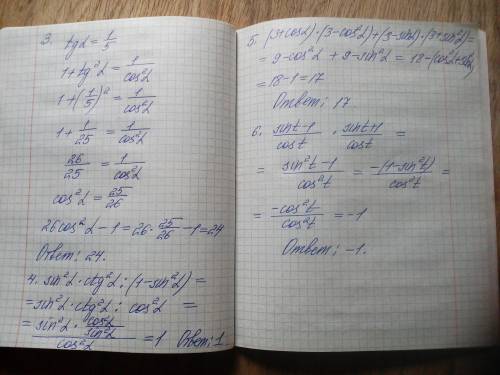 3. tg α = 1/5
1 + tg²α = 1/cos²α
1 + (1/5)² = 1/cos²α
1 + 1/25 = 1/cos²α
26/25 = 1/cos²α
cos²α = 25/26
26cos²α - 1 = 26 · 25/26 - 1 = 24
Ответ: 24.
4. sin²α · ctg²α : (1 - sin²α) =
= sin²α · ctg²α : cos²α =
= (sin²α · cos²α/sin²α)/cos²α = 1 Ответ: 1
5. (3 + cosα) · (3 - cos²α) + (3 - sinα) · (3 + sin²α) =
= 9 - cos²α + 9 - sin²α = 18 - (cos²α + sin²α)
= 18 - 1 = 17
Ответ: 17
6. (sin t - 1)/cos t · (sin t + 1)/cos t =
= (sin²t - 1)/cos²t = -(1 - sin²t)/cos²t =
= -cos²t/cos²t = -1
Ответ: -1.